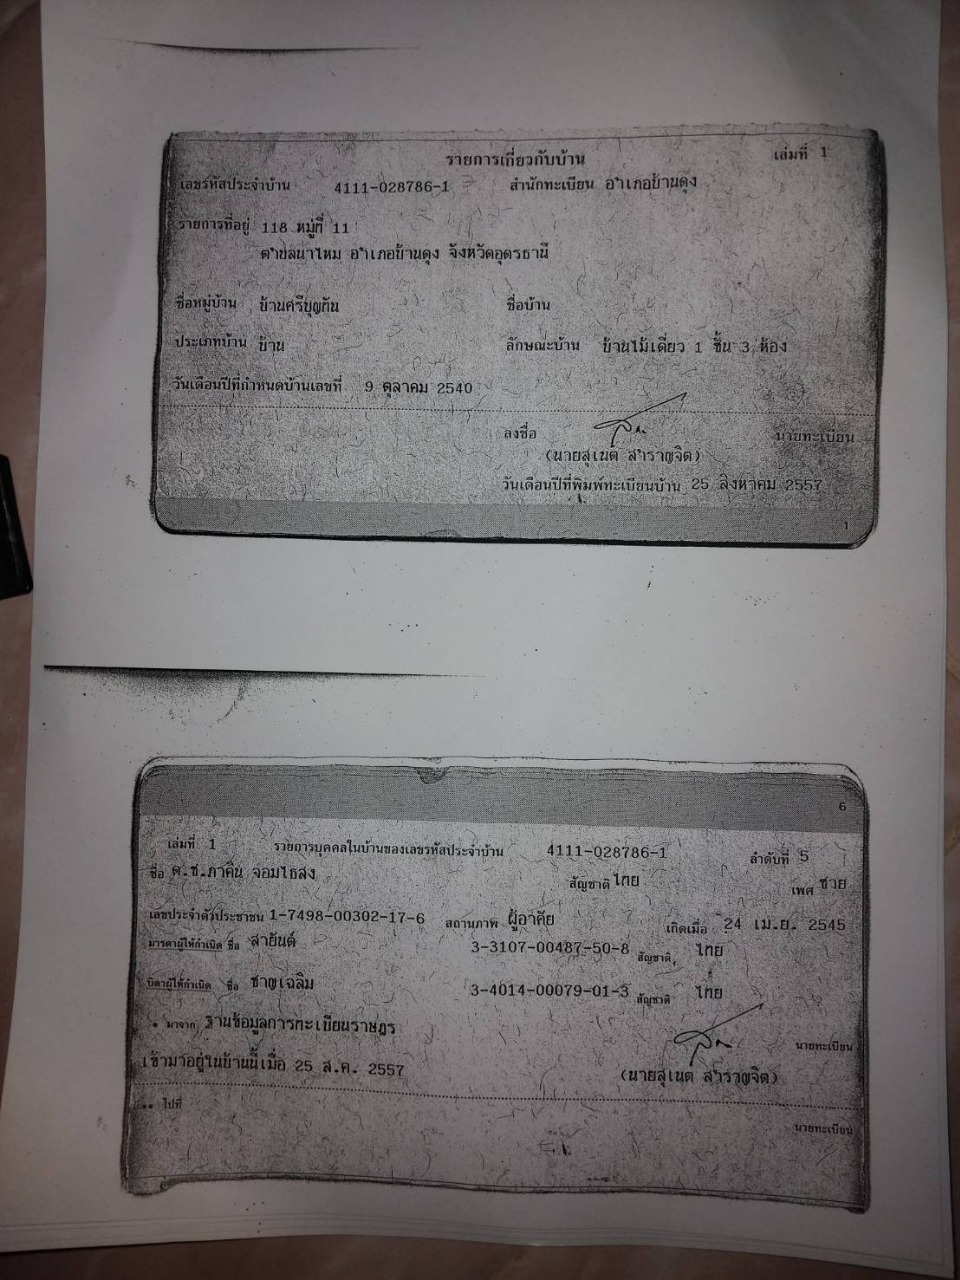 รายการเกี่ยวกับบ้าน เล่มที่ 1
เลขรหัสประจำบ้าน 4111-028786-1 สำนักทะเบียน อำเภอบ้านดุง
รายการที่อยู่ 118 หมู่ที่ 11
ตำบลนาไหม อำเภอบ้านดุง จังหวัดอุดรธานี
ชื่อหมู่บ้าน บ้านศรีบุญทัน ชื่อบ้าน
ประเภทบ้าน บ้าน ลักษณะบ้าน บ้านไม้เดี่ยว 1 ชั้น 3 ห้อง
วันเดือนปีที่กำหนดบ้านเลขที่ 9 ตุลาคม 2540
ลงชื่อ นายทะเบียน
(นายสุเนต สำราญจิต)
วันเดือนปีที่พิมพ์ทะเบียนบ้าน 25 สิงหาคม 2557
1
6
เล่มที่ 1 รายการบุคคลในบ้านของเลขรหัสประจำบ้าน 4111-028786-1 ลำดับที่ 5
ชื่อ ด.ช.ภาคิน จอมไธสง สัญชาติ ไทย เพศ ชาย
เลขประจำตัวประชาชน 1-7498-00302-17-6 สถานภาพ ผู้อาศัย เกิดเมื่อ 24 เม.ย. 2545
มารดาผู้ให้กำเนิด ชื่อ สายันต์ 3-3107-00487-50-8 สัญชาติ ไทย
บิดาผู้ให้กำเนิด ชื่อ ชาญเฉลิม 3-4014-00079-01-3 สัญชาติ ไทย
* มาจาก ฐานข้อมูลการทะเบียนราษฎร นายทะเบียน
เข้ามาอยู่ในบ้านนี้เมื่อ 25 ส.ค. 2557 (นายสุเนต สำราญจิต)
** ไปที่
นายทะเบียน